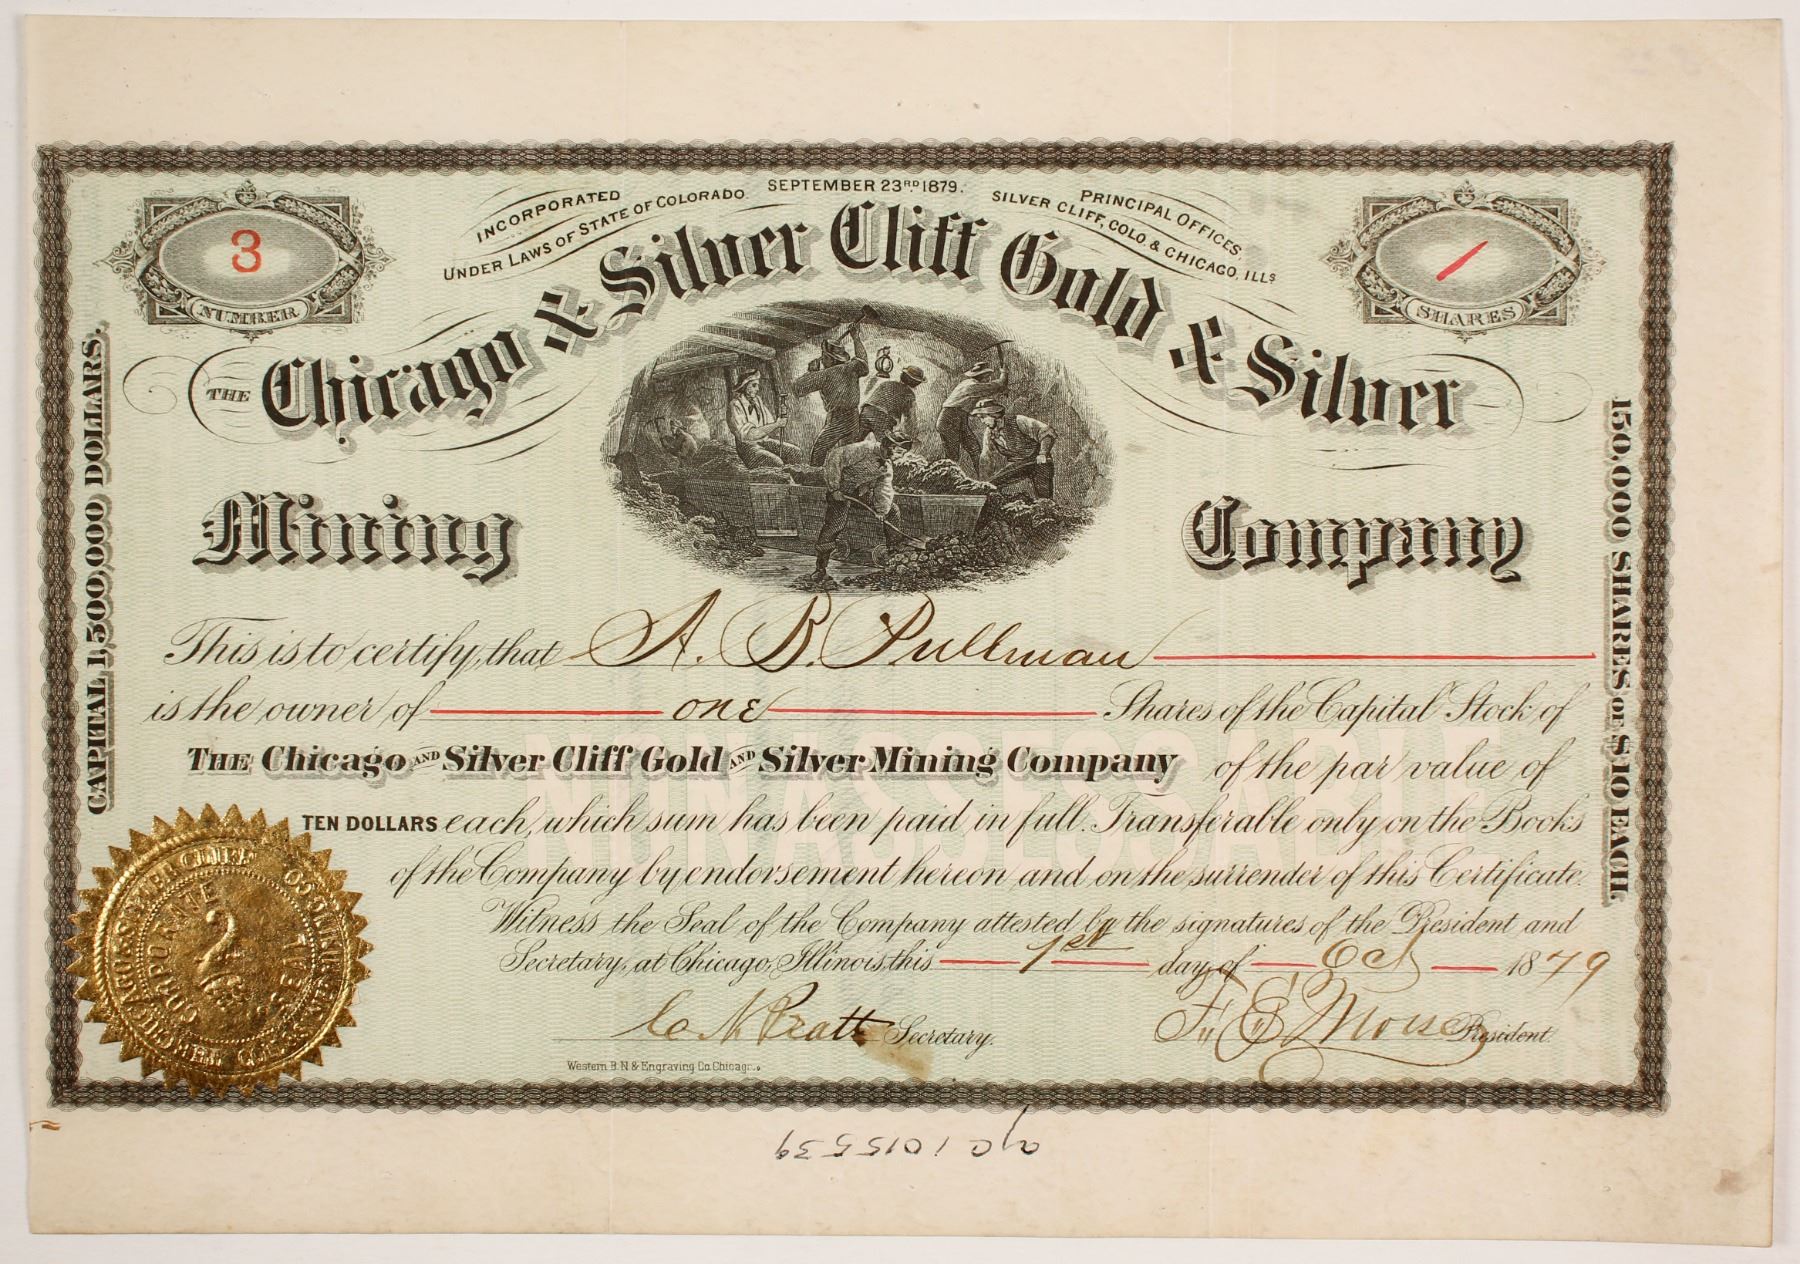 3
NUMBER
INCORPORATED
UNDER LAWS OF STATE OF COLORADO.
SEPTEMBER 23RD 1879.
PRINCIPAL OFFICES,
SILVER CLIFF, COLO. & CHICAGO, ILLS
1
SHARES
THE Chicago & Silver Cliff Gold & Silver
Mining Company
CAPITAL 1,500,000 DOLLARS.
150,000 SHARES OF $10 EACH.
This is to certify, that A. B. Pullman
is the owner of one Shares of the Capital Stock of
THE Chicago AND Silver Cliff Gold AND Silver Mining Company of the par value of
NONASSESSABLE
TEN DOLLARS each, which sum has been paid in full. Transferable only on the Books
of the Company by endorsement hereon and on the surrender of this Certificate.
Witness the Seal of the Company attested by the signatures of the President and
Secretary, at Chicago, Illinois, this 1st day of Oct 1879
C N Pratt Secretary.
F. E. Morse President.
CORPORATE SEAL
Western B. N & Engraving Co. Chicago.
ac 1015539